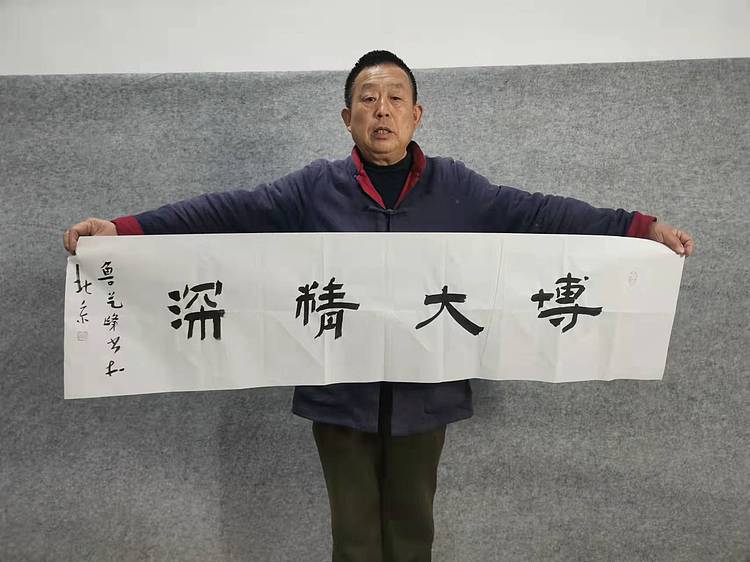 博大精深
鲁艺峰书于
北京